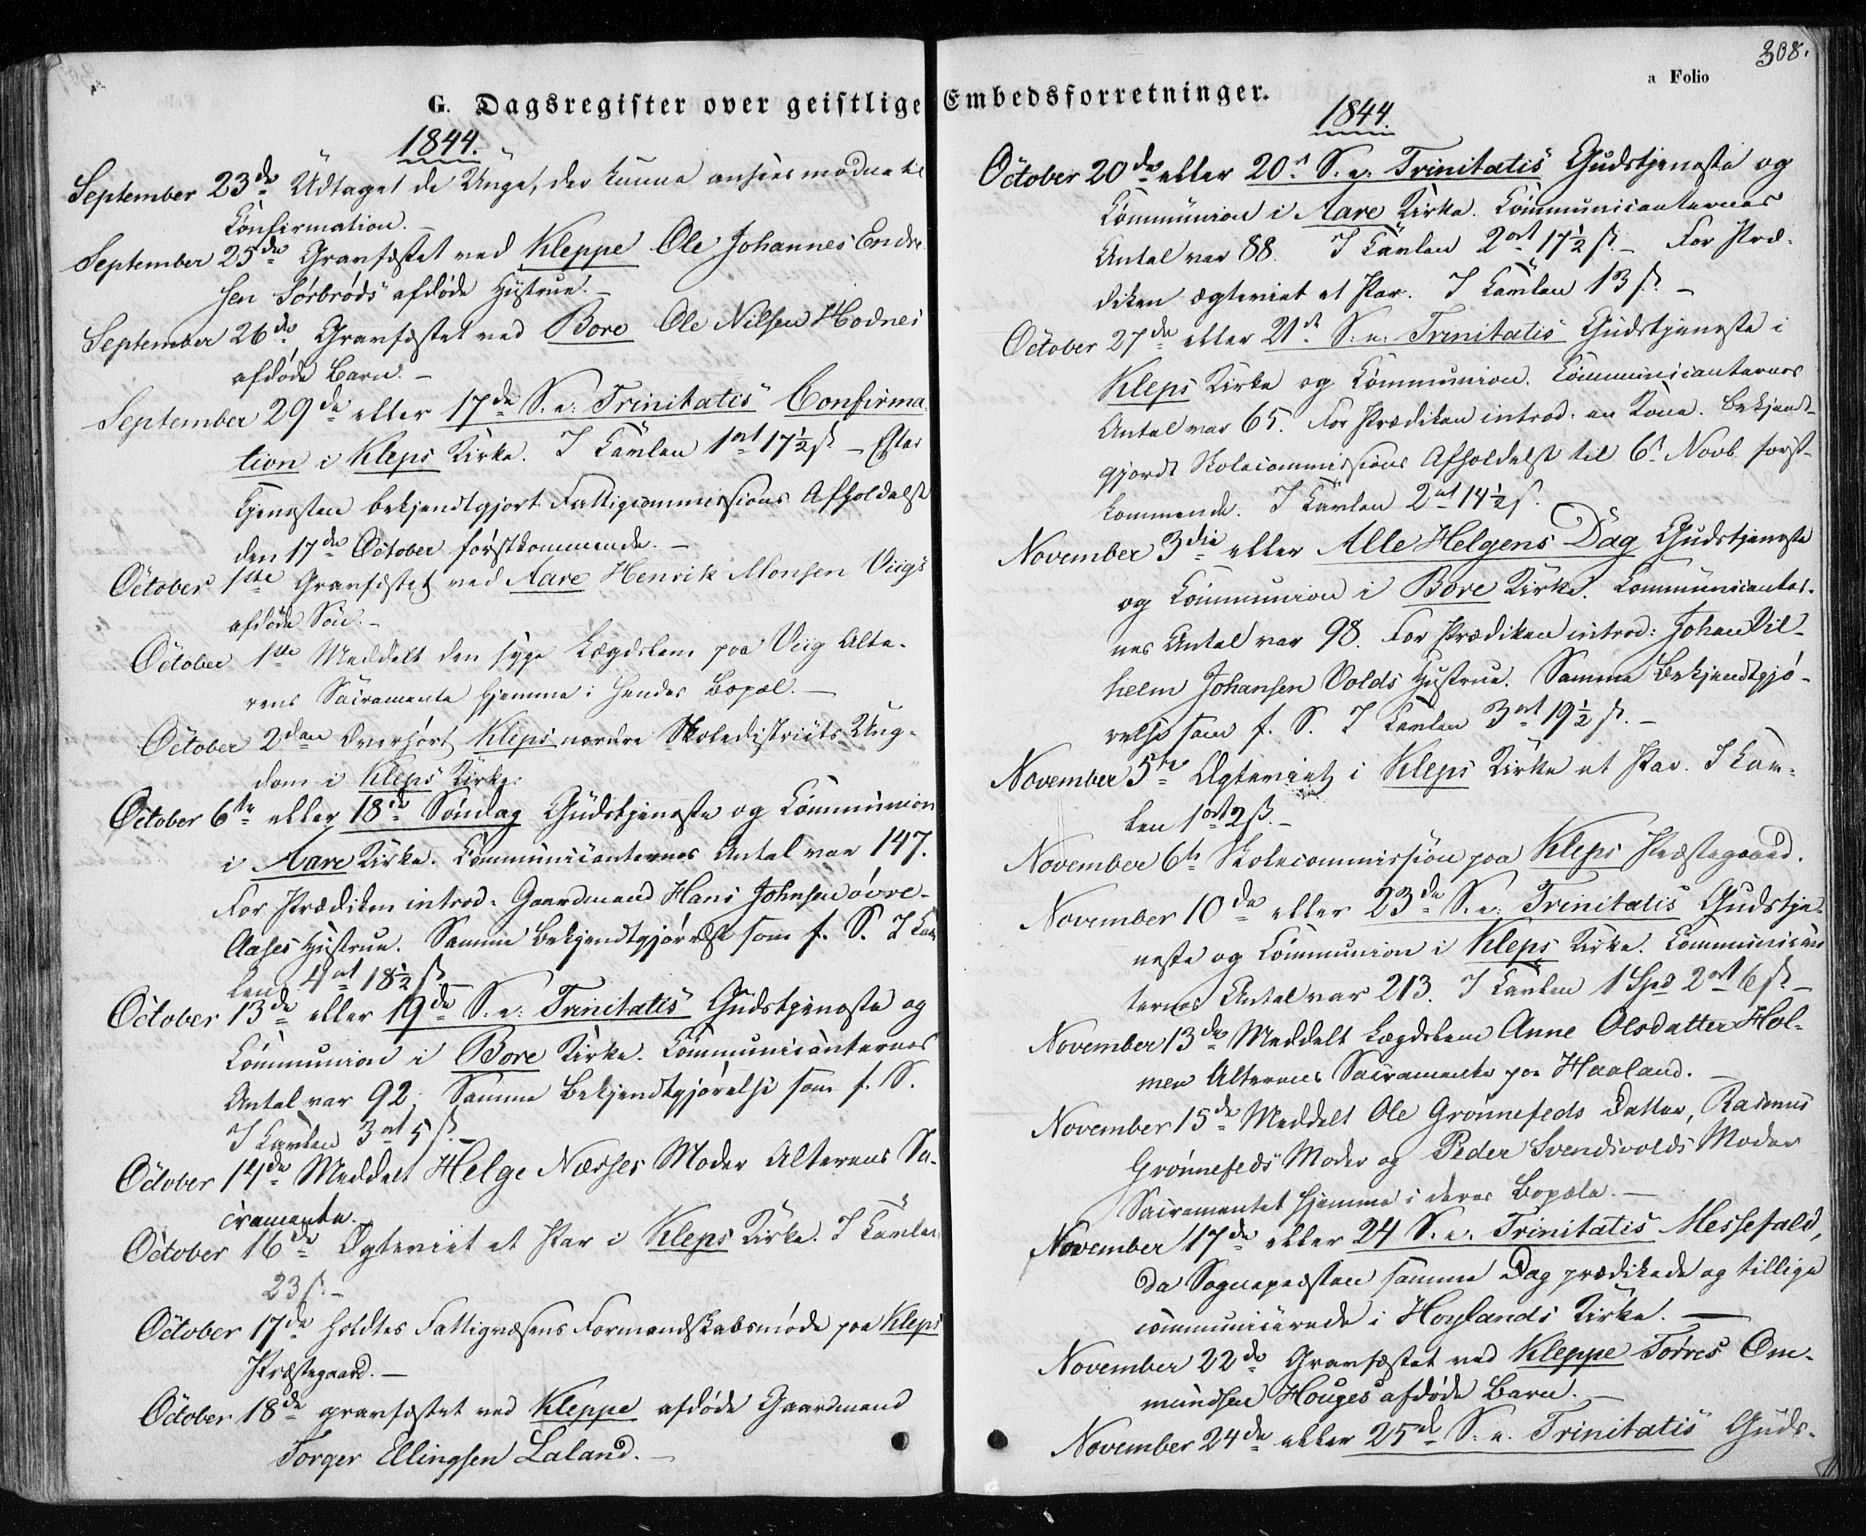 G. Dagsregister over geistlige Embedsforretninger.
a Folio
308.
1844.
September 23de Udtaget de Unge, der kunne ansees modne til
Confirmation. –
September 25de Gravfæstet ved Kleppe Ole Johannes Endre-
sen Sørbrøds afdøde Hustrue. –
September 26de Gravfæstet ved Bore Ole Nilsen Hodnes
afdøde Barn. –
September 29de eller 17de S. e. Trinitatis Confirma-
tion i Kleps Kirke. I Tavlen 1 ort 17½ ß. – Efter
Tjenesten bekjendtgjort Fattigcommissions Afholdelse
den 17de October førstkommende. –
October 1ste Gravfæstet ved Aare Henrik Monsen Viigs
afdøde Søn. –
October 1ste Meddelt den syge Lægdslem paa Viig Alte-
rens Sacramente hjemme i hendes Bopæl. –
October 2den Overhørt Kleps nordre Skoledistricts Ung-
dom i Kleps Kirke.
October 6te eller 18de Søndag Gudstjeneste og Communion
i Aare Kirke. Communicanternes Antal var 147.
For Prædiken introd. Gaardmand Hans Johnsen øvre-
Aases Hustrue. Samme Bekjendtgjørelse som f. S. I Tav-
len 4 ort 18½ ß. –
October 13de eller 19de S. e. Trinitatis Gudstjeneste og
Communion i Bore Kirke. Communicanternes
Antal var 92. Samme Bekjendtgjørelse som f. S.
I Tavlen 3 ort 5 ß. –
October 14de Meddelt Helge Næsses Moder Alterens Sa-
cramente. –
October 16de Ægteviet et Par i Kleps Kirke. I Tavlen
23 ß. –
October 17de holdtes Fattigvæsens Formandskabsmøde paa Kleps
Præstegaard. –
October 18de gravfæstet ved Kleppe afdøde Gaardmand
Torger Ellingsen Laland. –
1844.
October 20de eller 20de S. e. Trinitatis Gudstjeneste og
Communion i Aare Kirke. Communicanternes
Antal var 88. I Tavlen 2 ort 17½ ß. – For Præ-
diken ægteviet et Par. I Tavlen 13 ß. –
October 27de eller 21de S. e. Trinitatis Gudstjeneste i
Kleps Kirke og Communion. Communicanternes
Antal var 65. For Prædiken introd. en Kone. Bekjendt-
gjordt Skolecommissions Afholdelse til 6te Novb. først-
kommende. I Tavlen 2 ort 14½ ß.
November 3die eller Alle Helgens Dag Gudstjeneste
og Communion i Bore Kirke. Communicanter-
nes Antal var 98. For Prædiken introd: Johan Vil-
helm Johansen Volds Hustrue. Samme Bekjendtgjø-
relse som f. S. I Tavlen 3 ort 19½ ß. –
November 5te Ægteviet i Kleps Kirke et Par. I Tav-
len 1 ort 2 ß. –
November 6te Skolecommission paa Kleps Præstegaard.
November 10de eller 23de S. e. Trinitatis Gudstje-
neste og Communion i Kleps Kirke. Communican-
ternes Antal var 213. I Tavlen 1 Spd 2 ort 6 ß –
November 13de Meddelt Lægdslem Anne Olsdatter Hol-
men Alterens Sacramente paa Haaland. –
November 15de Meddelt Ole Grønnefeds Datter, Rasmus
Grønnefeds Moder og Peder Svendsvolds Moder
Sacramentet hjemme i deres Bopæle. –
November 17de eller 24 S. e. Trinitatis Messefald,
da Sognepræsten samme Dag prædikede og tillige
communicerede i Hoylands Kirke. –
November 22de Gravfæstet ved Kleppe Tørres Om-
mundsen Houges afdøde Barn. –
November 24de eller 25de S. e. Trinitatis Guds-